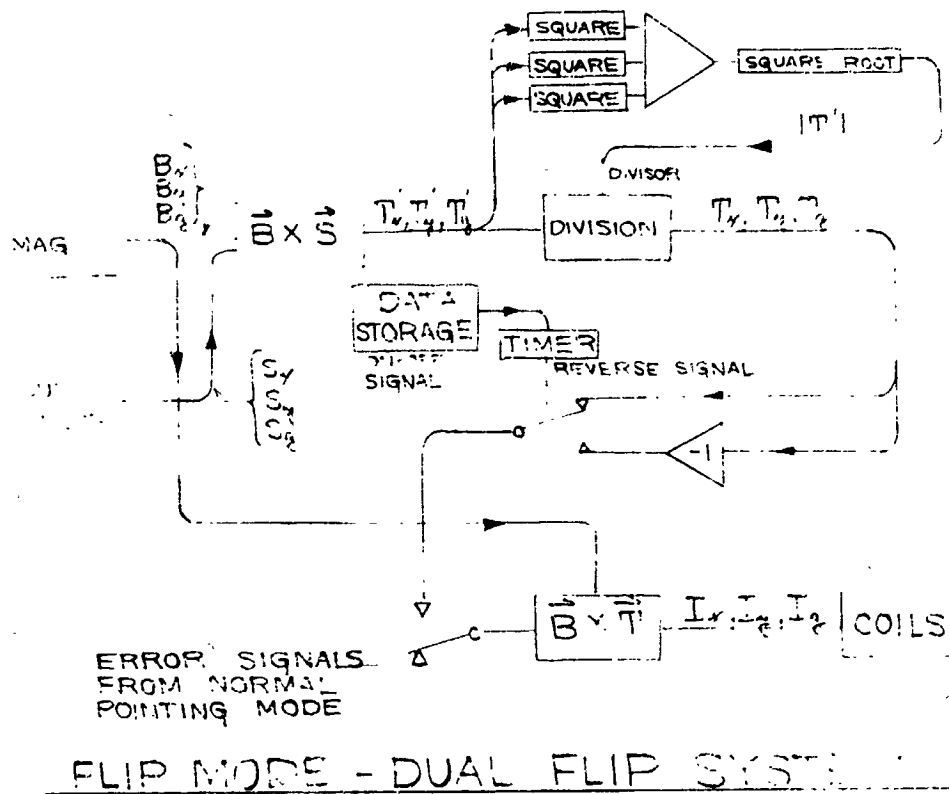 SQUARE
SQUARE
SQUARE
SQUARE ROOT
|T'|
DIVISOR
B
B
B
MAG
B⃗ × S⃗
T'x, T'y, T'z
DIVISION
Tx, Ty, Tz
DATA
STORAGE
SIGNAL
TIMER
REVERSE SIGNAL
S
S
S
-1
B⃗ × T⃗
Ix, Iy, Iz
COILS
ERROR SIGNALS
FROM NORMAL
POINTING MODE
FLIP MODE - DUAL FLIP